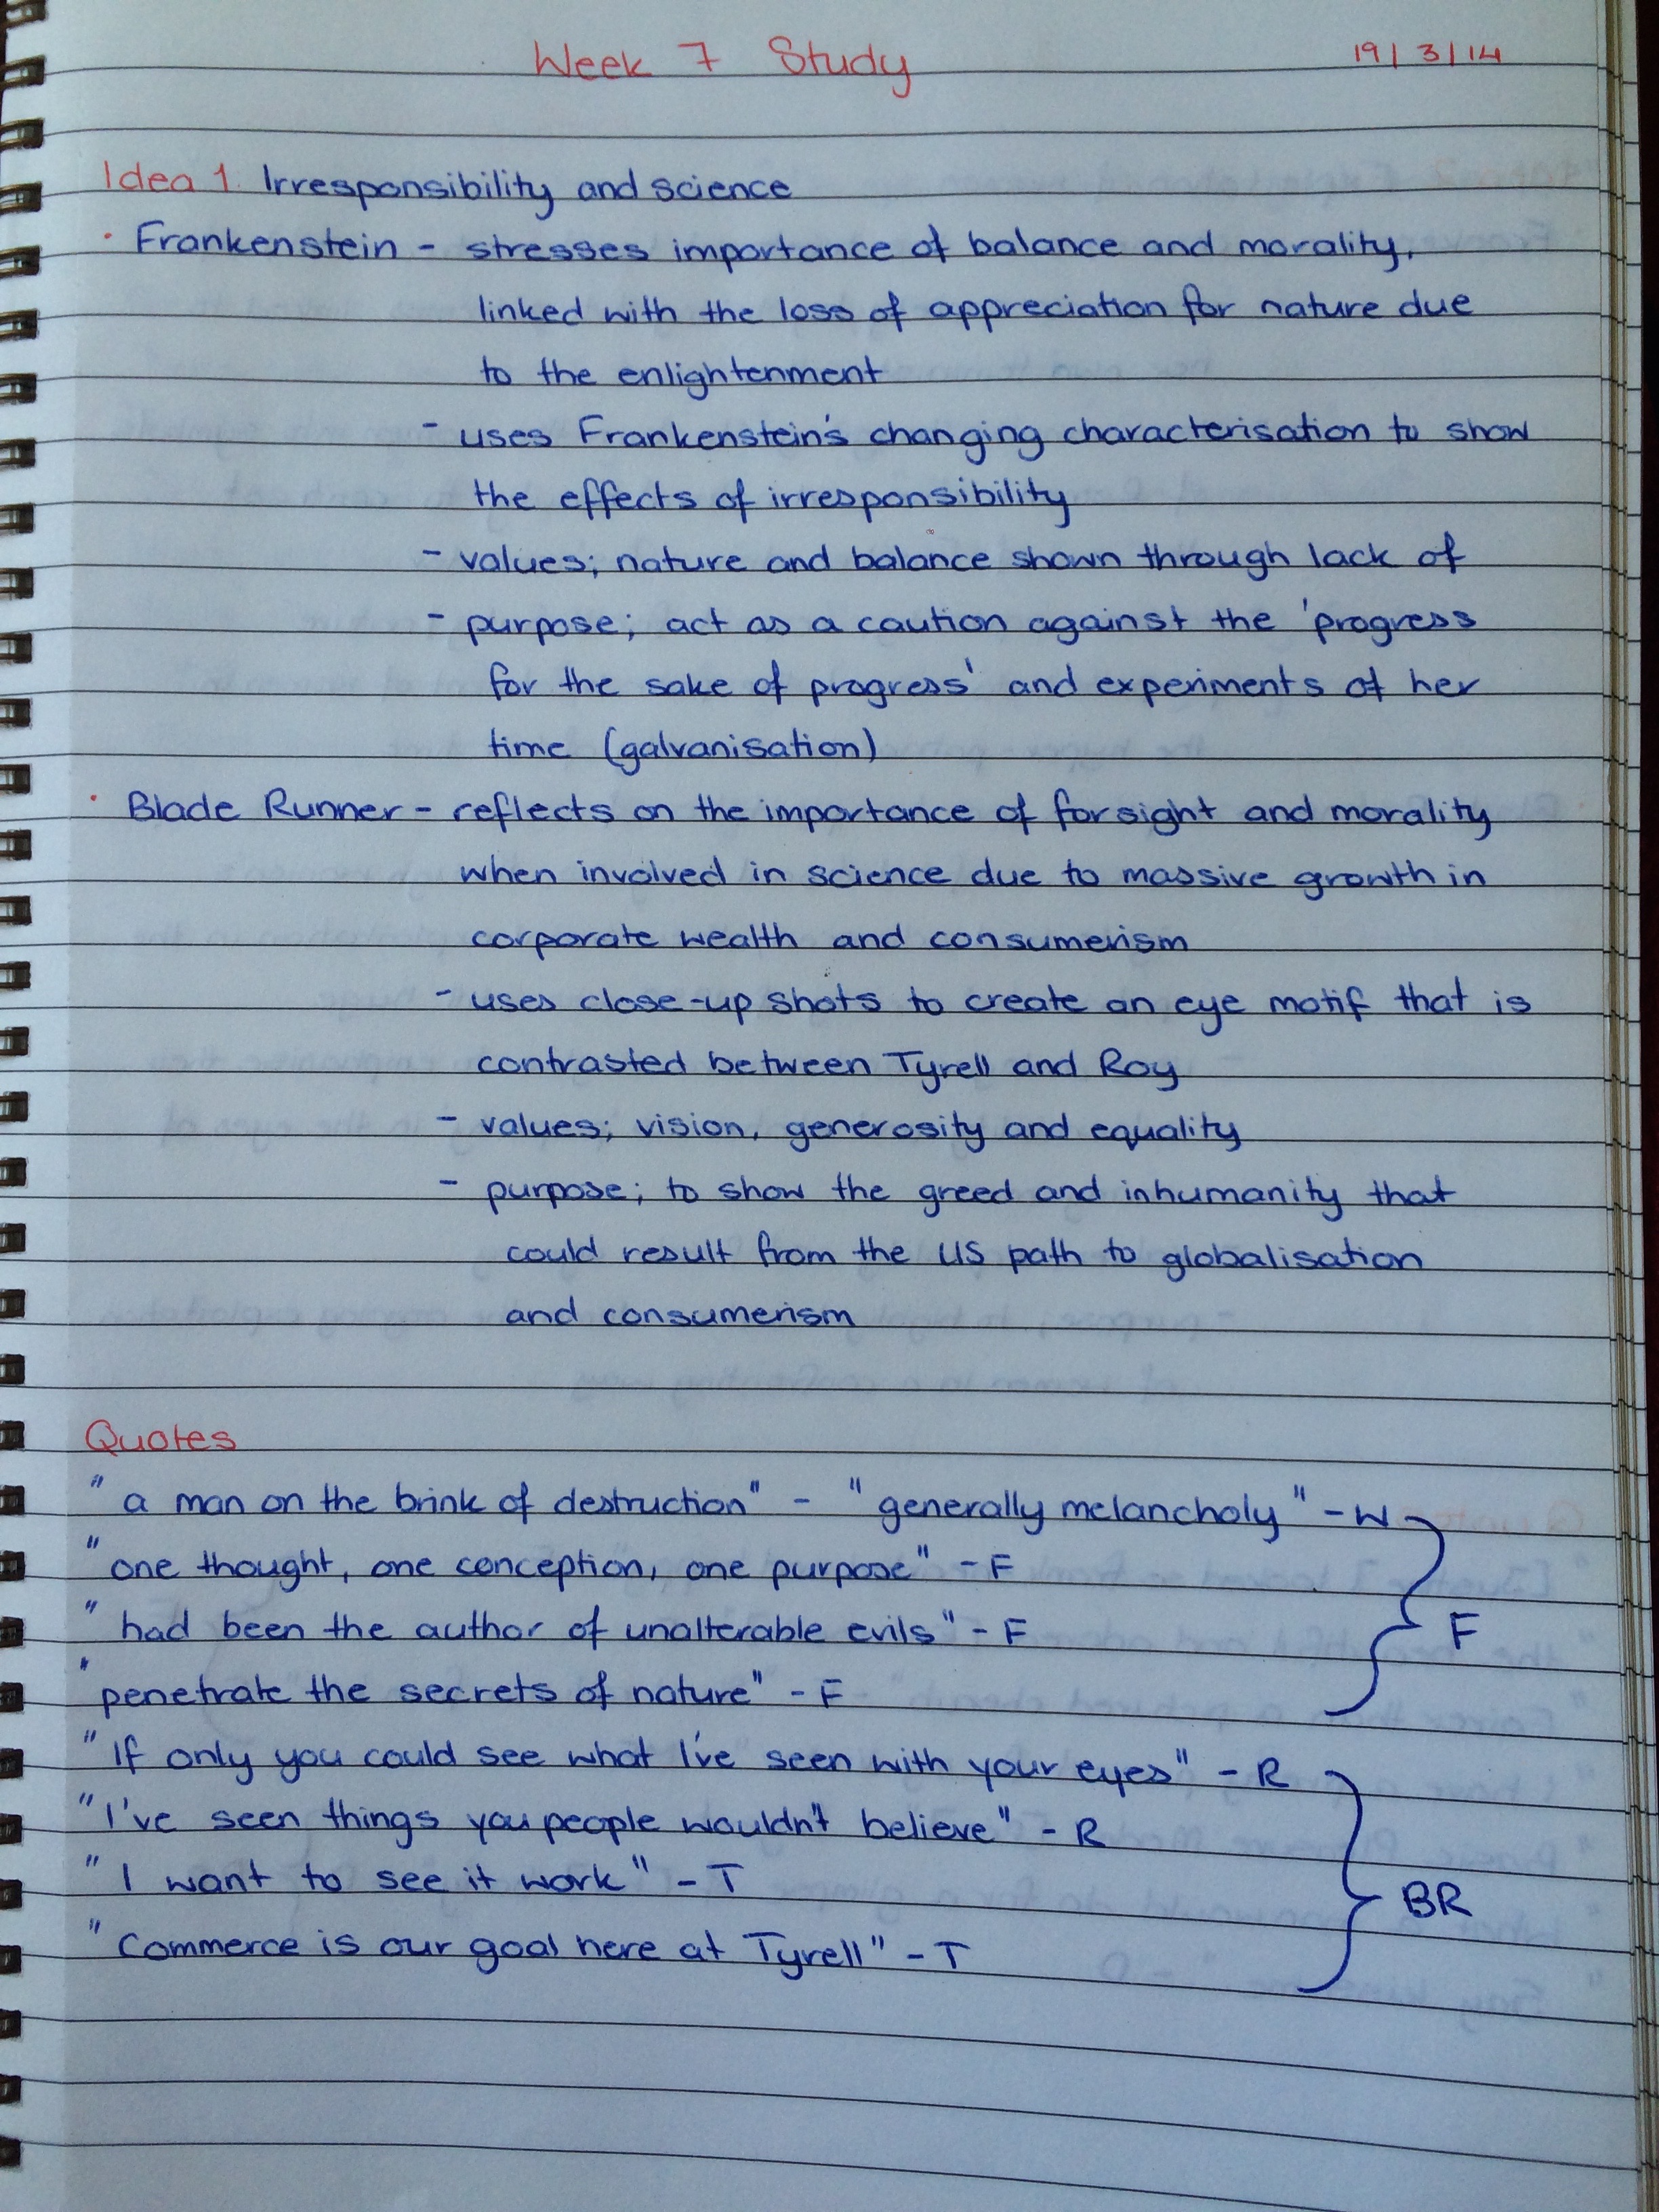 Week 7 Study 19/3/14
Idea 1 Irresponsibility and science
· Frankenstein - stresses importance of balance and morality,
linked with the loss of appreciation for nature due
to the enlightenment
- uses Frankenstein's changing characterisation to show
the effects of irresponsibility
- values; nature and balance shown through lack of
- purpose; act as a caution against the 'progress
for the sake of progress' and experiments of her
time (galvanisation)
· Blade Runner - reflects on the importance of forsight and morality
when involved in science due to massive growth in
corporate wealth and consumerism
- uses close-up shots to create an eye motif that is
contrasted between Tyrell and Roy
- values; vision, generosity and equality
- purpose; to show the greed and inhumanity that
could result from the US path to globalisation
and consumerism
Quotes
"a man on the brink of destruction" - "generally melancholy" - W
"one thought, one conception, one purpose" - F
"had been the author of unalterable evils" - F
F
'penetrate the secrets of nature" - F
"If only you could see what I've seen with your eyes" - R
"I've seen things you people wouldn't believe" - R
"I want to see it work" - T
BR
"Commerce is our goal here at Tyrell" - T